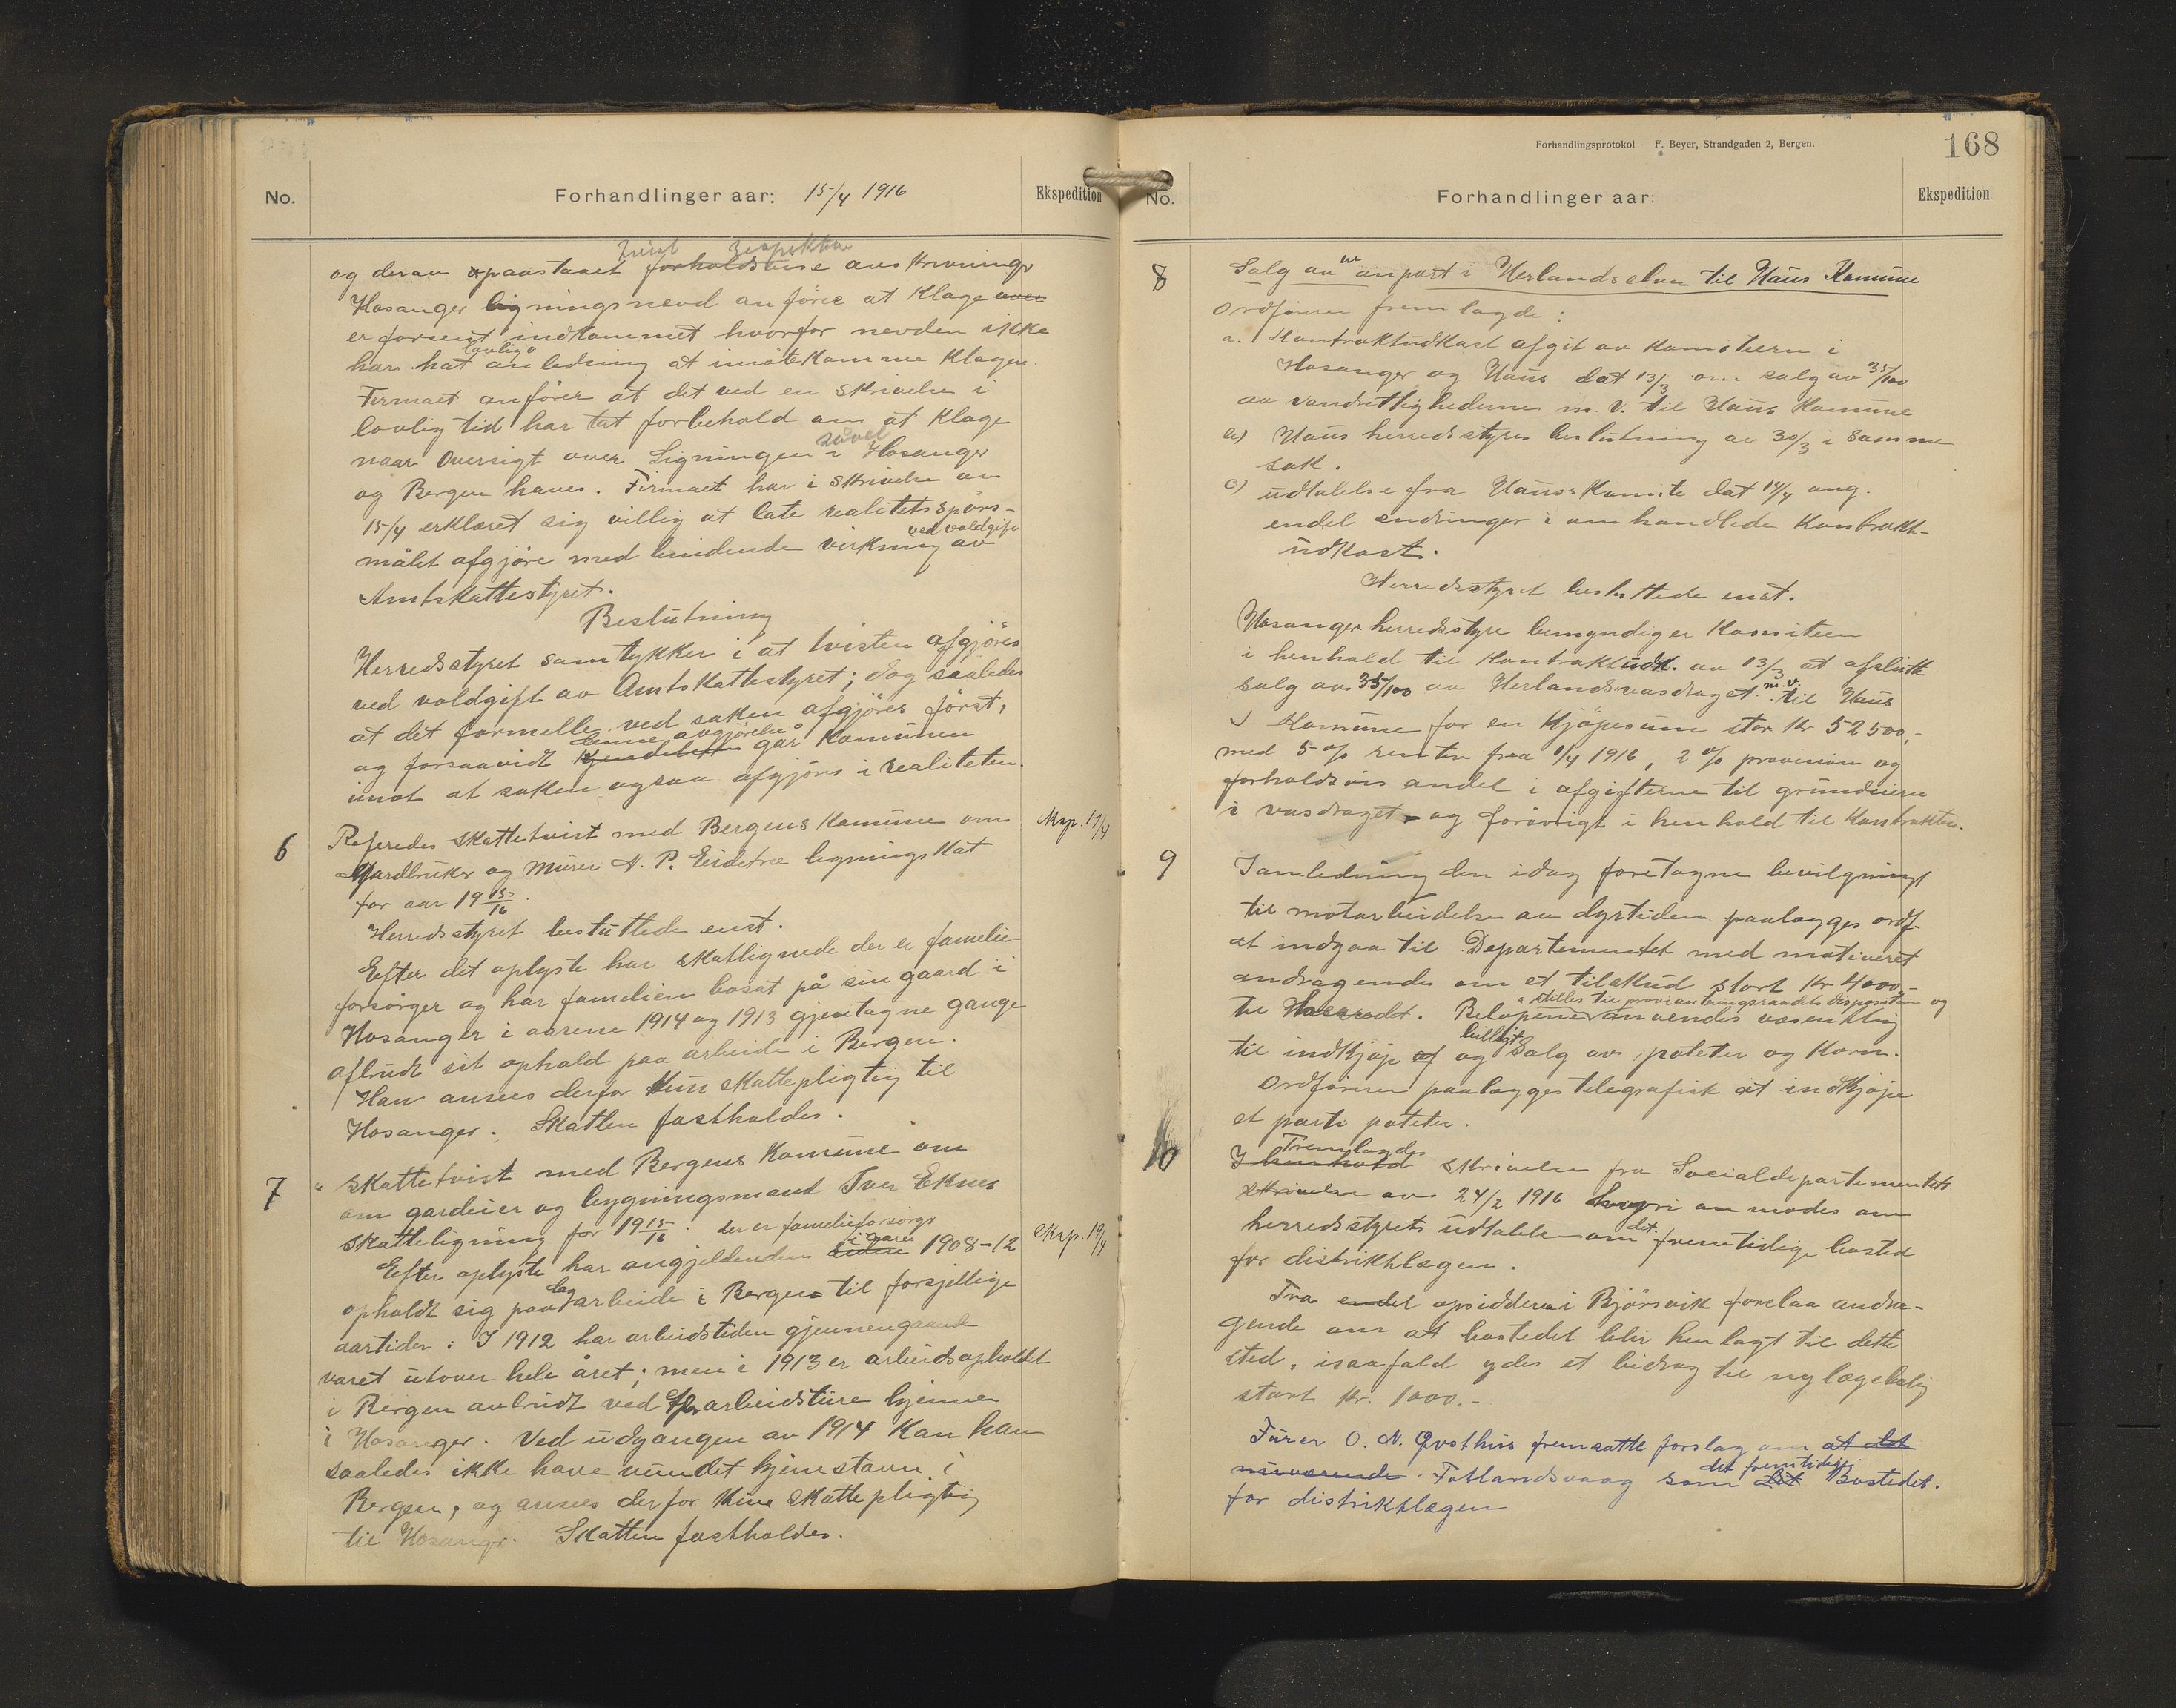 No.
Forhandlinger aar: 15/4 1916
Ekspedition
og derav opaastaaet forholdsvise avskrivninger
Hosanger ligningsnevd anförer at Klage over
er forsent indkommet hvorfor nevden ikke
lovlig
har hat anledning at imötekomme Klagen.
Firmaet anförer at det ved en skrivelse i
lovlig tid har tat forbehold om at Klage
såvel
naar Oversigt over Ligningen i Hosanger
og Bergen haves. Firmaet har i skrivelse av
15/4 erklæret sig villig at late realitetsspörs-
ved voldgift
målet afgjöre med bindende virkning av
Amtskattestyret.
Beslutning
Herredsstyret samtykker i at tvisten afgjöres
ved voldgift av Amtskattestyret; dog saaledes
at det formelle ved saken afgjöres först,
denne avgjörelse
og forsaavidt Kjendelsen går Komunen
imot at saken ogsaa afgjöres i realiteten.
6
Referedes skattetvist med Bergens Komune om
Eksp. 19/4
Gardbruker og Murer N. P. Eidetræ ligningskat
for aar 19 15/16.
Herredsstyret besluttede enst.
Efter det oplyste har skatlignede der er familie-
forsörger og har familien bosat på sin gaard i
Hosanger i aarene 1914 og 1913 gjentagne gange
afbrudt sit ophold paa arbeide i Bergen.
Han ansees derfor kun skattepligtig til
Hosanger. Skatten fastholdes.
7
Skattetvist med Bergens Komune om
om gardeier og bygningsmand Iver Eknes
skatteligning for 19 15/16.
der er familieforsörger
i aarene
Efter oplyste har angjeldende siden 1908-12
Eksp. 19/4
dag
opholdt sig paa arbeide i Bergen til forsjellige
aartider. I 1912 har arbeidstiden gjennengaaende
varet utover hele året; men i 1913 er arbeidsopholdet
i Bergen avbrudt ved arbeidsture hjemme
i Hosanger. Ved udgangen av 1914 Kan han
saaledes ikke have vundet hjemstavn i
Bergen, og ansees derfor Kun skattepligtig
til Hosanger. Skatten fastholdes.
Forhandlingsprotokol — F. Beyer, Strandgaden 2, Bergen.
168
No.
Forhandlinger aar:
Ekspedition
8
Salg av en anpart i Herlandselven til Haus Komune
Ordföreren fremlagde:
a. Kontraktudkast afgit av Komiteern i
Hosanger og Haus dat 13/3 om salg av 35/100
av vandrettighederne m. v. til Haus Komune
b) Haus herredsstyres beslutning av 30/3 i samme
sak.
c) udtalelse fra Hauss Komite dat 14/4 ang.
endel endringer i omhandlede Kontrakt-
udkast.
Herredsstyret besluttede enst.
Hosanger herredsstyre bemyndiger Komiteen
i henhold til Kontraktudk. av 13/3 at afslutte
salg av 35/100 av Herlandsvasdraget m. v. til Haus
Komune for en Kjöpesum stor Kr 52500,-
med 5 % renter fra 1/4 1916, 2 % provision og
forholdsvis andel i afgifterne til grundeierne
i vasdraget og forövrigt i henhold til Kontrakten.
9
I anledning den idag foretagne bevilgning
til motarbeidelse av dyrtiden paalægges ordf.
at indgaa til Departementet med motiveret
andragende om et tilskud stort Kr 4000,-
stilles til provianteringsraadets disposition og
til Herredet. Belöpene anvendes væsentlig
billigt
til indkjöp af og salg av poteter og Korn.
Ordföreren paalægges telegrafisk at indkjöpe
et parti poteter.
10
Fremlagdes
I henhold skrivelse fra Socialdepartementets
skrivelse av 24/2 1916 hvori anmodes om
herredsstyrets udtalelse om det fremtidige bosted
for distriktslægen.
Fra endel opsiddere i Bjørsvik forelaa andra-
gende om at bostedet blir henlagt til dette
sted, isaafald ydes et bidrag til ny lægebolig
stort Kr. 1000.-
Furer O. N. Qvsthus fremsatte forslag om at det
det fremtidige
nuværende Totlandsvaag som det Bostedet.
for distriktslægen